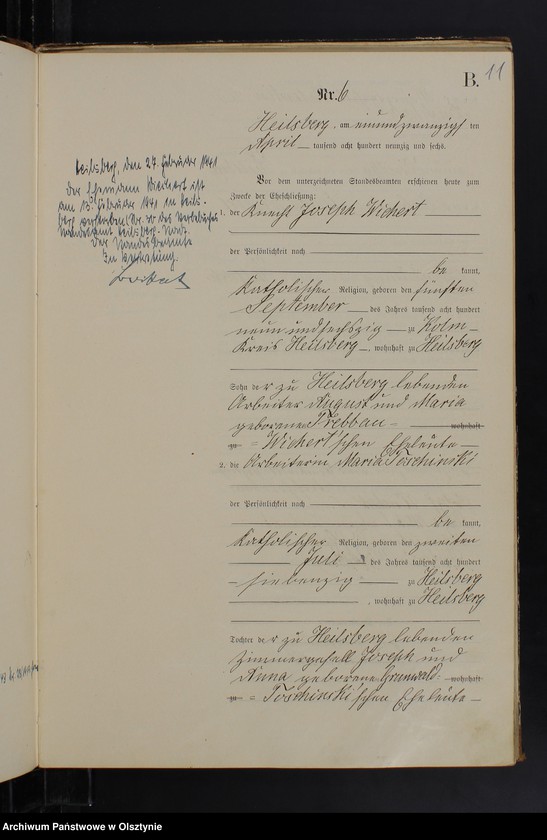 B. 11
Nr. 6
Heilsberg, am einundzwanzigsten
April tausend acht hundert neunzig und sechs.
Vor dem unterzeichneten Standesbeamten erschienen heute zum
Zwecke der Eheschließung:
1. der Knecht Joseph Wichert
der Persönlichkeit nach
be kannt,
katholischer Religion, geboren den fünften
September des Jahres tausend acht hundert
neun und sechszig zu Kolm
Kreis Heilsberg, wohnhaft zu Heilsberg
Sohn der zu Heilsberg lebenden
Arbeiter August und Maria
geborenen Trebbau wohnhaft
zu = Wichert'schen Eheleute
2. die Arbeiterin Maria Toschinski
der Persönlichkeit nach
be kannt,
katholischer Religion, geboren den zweiten
Juli des Jahres tausend acht hundert
siebenzig zu Heilsberg
, wohnhaft zu Heilsberg
Tochter der zu Heilsberg lebenden
Zimmergesell Joseph und
Anna geborene Grunwald wohnhaft
zu = Toschinski'schen Eheleute
Heilsberg, den 27. Februar 1941
Der Ehemann Wichert ist
am 13. Februar 1941 in Heils-
berg verstorben (Nr. des Sterbebuches
Standesamt Heilsberg-
Der Standesbeamte
In Vertretung.
Archiwum Państwowe w Olsztynie